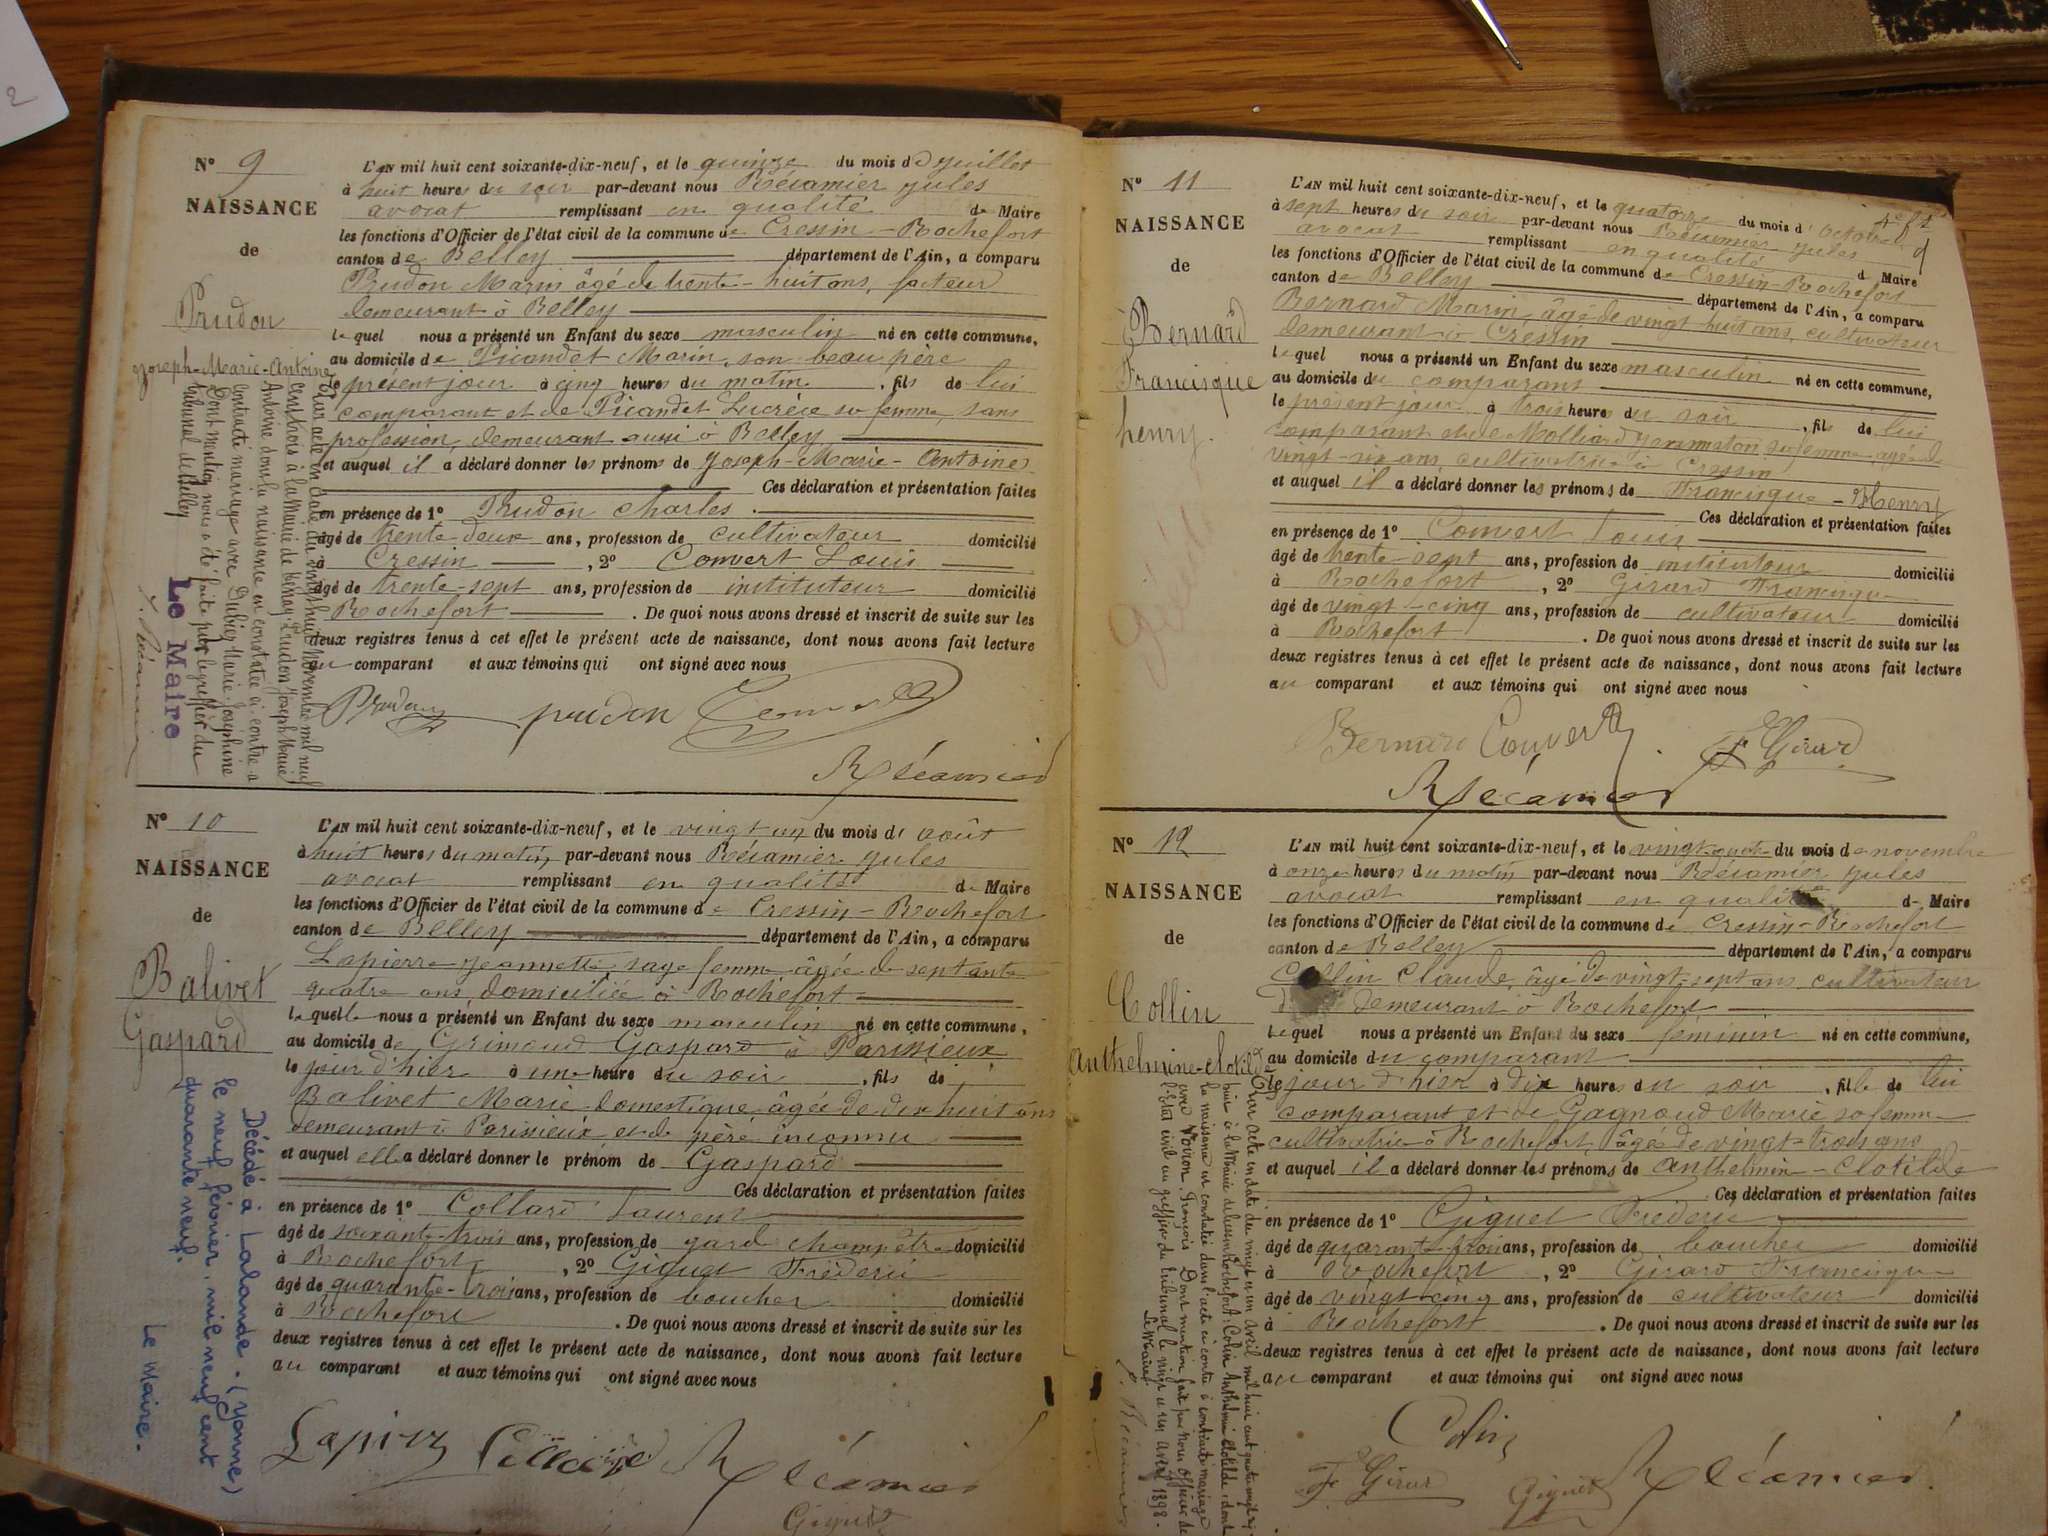 2
N° 9
NAISSANCE
de
Prudon
Joseph-Marie-Antoine
L'AN mil huit cent soixante-dix-neuf, et le quinze du mois de Juillet
à huit heures du soir par-devant nous Récamier Jules
avocat remplissant en qualité de Maire
les fonctions d'Officier de l'état civil de la commune de Cressin-Rochefort
canton de Belley département de l'Ain, a comparu
Prudon Marin âgé de trente-huit ans, facteur
demeurant à Belley
lequel nous a présenté un Enfant du sexe masculin né en cette commune,
au domicile de Picandet Marin, son beau père
le présent jour à cinq heures du matin, fils de lui
comparant et de Picandet Lucrèce sa femme, sans
profession, demeurant aussi à Belley,
et auquel il a déclaré donner les prénoms de Joseph-Marie-Antoine
Ces déclaration et présentation faites
en présence de 1° Prudon Charles
âgé de trente deux ans, profession de cultivateur domicilié
à Cressin, 2° Convert Louis
âgé de trente-sept ans, profession de instituteur domicilié
à Rochefort. De quoi nous avons dressé et inscrit de suite sur les
deux registres tenus à cet effet le présent acte de naissance, dont nous avons fait lecture
au comparant et aux témoins qui ont signé avec nous
Prudon prudon Convert
Récamier
Par acte en date du vingt huit Novembre mil neuf
cent trois à la Mairie de Prudon Joseph Marie
Antoine dont la naissance est constatée ci-contre a
contracté mariage avec Dubiez Marie Joséphine
Dont mention nous a été faite par le greffier du
tribunal de Belley
Le Maire
J. Récamier
N° 10
NAISSANCE
de
Balivet
Gaspard
L'AN mil huit cent soixante-dix-neuf, et le vingt un du mois de août
à huit heures du matin par-devant nous Récamier Jules
avocat remplissant en qualité de Maire
les fonctions d'Officier de l'état civil de la commune de Cressin-Rochefort
canton de Belley département de l'Ain, a comparu
Lapierre Jeannette sage femme âgée de septante
quatre ans, domiciliée à Rochefort
laquelle nous a présenté un Enfant du sexe masculin né en cette commune,
au domicile de Grimoud Gaspard à Parissieux
le jour d'hier à une heure du soir, fils de
Balivet Marie domestique âgée de dix huit ans
demeurant à Parissieux et de père inconnu
et auquel elle a déclaré donner le prénom de Gaspard
Ces déclaration et présentation faites
en présence de 1° Collard Laurent
âgé de soixante-trois ans, profession de gard champêtre domicilié
à Rochefort, 2° Giguet Frédéric
âgé de quarante-trois ans, profession de boucher domicilié
à Rochefort. De quoi nous avons dressé et inscrit de suite sur les
deux registres tenus à cet effet le présent acte de naissance, dont nous avons fait lecture
au comparant et aux témoins qui ont signé avec nous
Récamier
Giguet
Décédé à Lalande. (Yonne)
le neuf février, mil neuf cent
quarante neuf.
Le Maire.
N° 11
NAISSANCE
de
Bernard
Francisque
henry.
Décédé
L'AN mil huit cent soixante-dix-neuf, et le quatorze du mois d'octobre
à sept heures du soir par-devant nous Récamier Jules
avocat remplissant en qualité de Maire
les fonctions d'Officier de l'état civil de la commune de Cressin-Rochefort
canton de Belley département de l'Ain, a comparu
Bernard Marin, âgé de vingt huit ans, cultivateur
demeurant à Cressin
lequel nous a présenté un Enfant du sexe masculin né en cette commune,
au domicile du comparant
le présent jour à trois heures du soir, fils de lui
comparant et de Molliard sa femme, agée de
vingt-six ans, cultivatrice à Cressin
et auquel il a déclaré donner les prénoms de Francisque-Henry
Ces déclaration et présentation faites
en présence de 1° Convert Louis
âgé de trente-sept ans, profession de instituteur domicilié
à Rochefort, 2° Girard Francisque
âgé de vingt-cinq ans, profession de cultivateur domicilié
à Rochefort. De quoi nous avons dressé et inscrit de suite sur les
deux registres tenus à cet effet le présent acte de naissance, dont nous avons fait lecture
au comparant et aux témoins qui ont signé avec nous
Bernard Convert F Girard
Récamier
N° 12
NAISSANCE
de
Collin
Anthelmine-Clotilde
L'AN mil huit cent soixante-dix-neuf, et le vingt-quatre du mois de novembre
à onze heures du matin par-devant nous Récamier Jules
avocat remplissant en qualité de Maire
les fonctions d'Officier de l'état civil de la commune de Cressin-Rochefort
canton de Belley département de l'Ain, a comparu
Collin Claude, âgé de vingt-sept ans cultivateur
demeurant à Rochefort
lequel nous a présenté un Enfant du sexe feminin né en cette commune,
au domicile du comparant
le jour d'hier à dix heures du soir, fille de lui
comparant et de Gagnoud Marie sa femme
cultivatrice à Rochefort, âgée de vingt-trois ans
et auquel il a déclaré donner les prénoms de Anthelmin-Clotilde
Ces déclaration et présentation faites
en présence de 1° Giguet Frédéric
âgé de quarante-trois ans, profession de boucher domicilié
à Rochefort, 2° Girard Francisque
âgé de vingt-cinq ans, profession de cultivateur domicilié
à Rochefort. De quoi nous avons dressé et inscrit de suite sur les
deux registres tenus à cet effet le présent acte de naissance, dont nous avons fait lecture
au comparant et aux témoins qui ont signé avec nous
Colin
F Girard Giguet Récamier
Par acte en date du vingt un avril mil huit cent quatre vingt dix
huit à la Mairie de Cressin Rochefort: Colin Anthelmin Clotilde dont
la naissance est constatée dans l'acte ci contre a contracté mariage
avec Voiron François Dont mention fait par Nous officier de
l'Etat civil au greffier du tribunal le vingt et un avril 1898.
Le Maire
J. Récamier